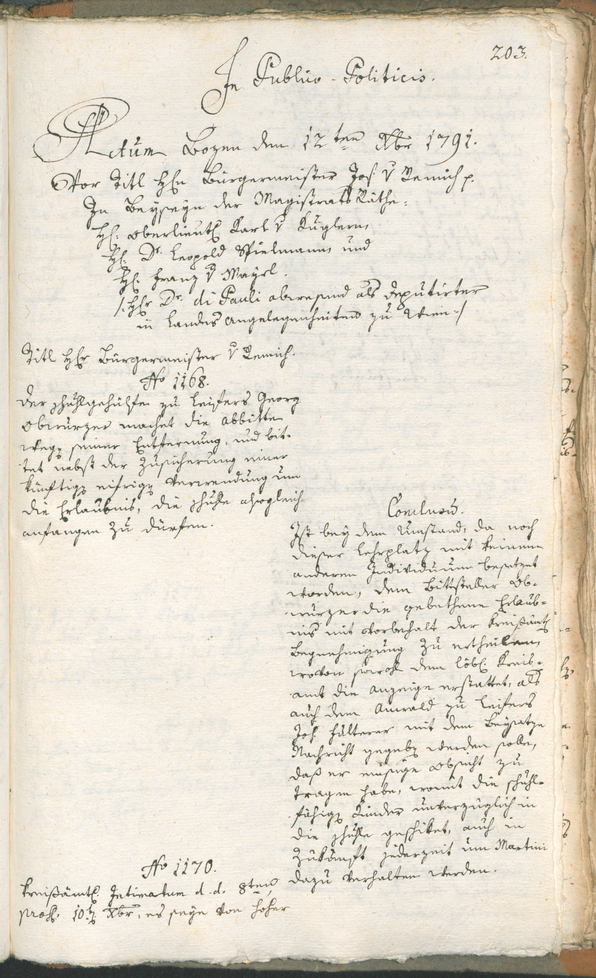 203.
In Publico-Politicis.
Actum Bozen den 12ten Xbr 1791.
Vor Titl Hℓn Bürgermeister Jos: v Remich p.
In Beyseyn der Magistrats Räthe:
Hℓ. Oberlieutℓ Karl v Kuglern,
Hℓ. Dr. Leopold Spielmann, und
Hℓ. Franz v Mayrl.
/: Hℓr Dr. di Pauli abwesend als Deputirter
in Landes Angelegenheiten zu Wien :/
Titl Hℓr Bürgermeister v Remich.
No 1168.
Der Schullgehülfe zu Leifers Georg
Obwurzer machet die Abbitte
wegℓ seiner Entfernung, und bit-
tet nebst der Zusicherung einer
künftigℓ eifrigℓ Verwendung um
die Erlaubnis, die Schulle alsogleich
anfangen zu dürfen.
Conclusum.
Ist bey dem Umstand, da noch
dieser Lehrplatz mit keinem
anderen Individuum besetzet
worden, dem Bittsteller Ob-
wurzer die gebethene Erlaub-
nis mit Vorbehalt der Kreisämtℓ
Begnehmigung zu ertheilen,
wovon sowohl dem löbℓ Kreis-
amt die Anzeige erstattet, als
auch dem Anwald zu Leifers
Jos: Falterer mit dem Beysatze
Nachricht gegebℓ werden solle,
daß er emsige Obsicht zu
tragen habe, womit die schull-
fähigℓ Kinder unverzüglich in
die Schulle geschicket, auch in
Zukunft jederzeit um Martini
dazu verhalten werden.
No 1170.
Kreisämtℓ Intimatum d.d. 8ten,
præs: 10ℓ Xbr, es seye von hoher